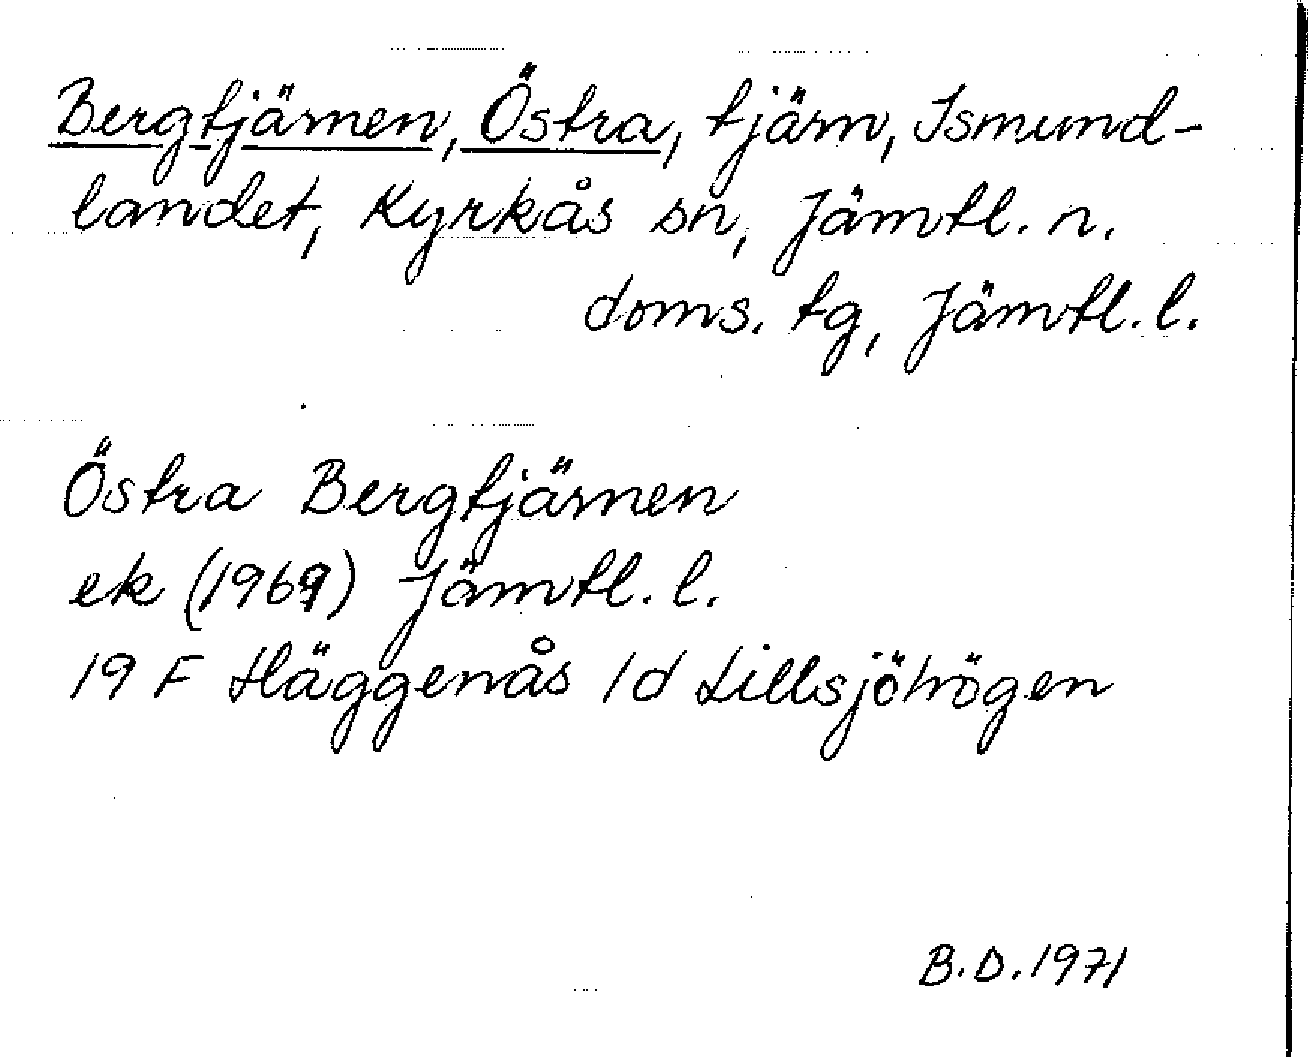 Bergtjärnen, Östra, tjärn, Ismund-
landet, Kyrkås sn, Jämtl. n.
doms. tg, Jämtl. l.
Östra Bergtjärnen
ek (1969) Jämtl. l.
19 F Häggenås 1d Lillsjöhögen
B.D. 1971